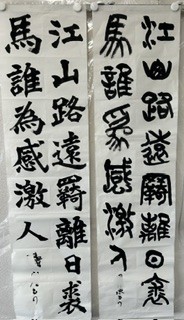 江山路遠羈離日裘
馬誰為感激人
江山路遠羈離日裘
馬誰為感激人